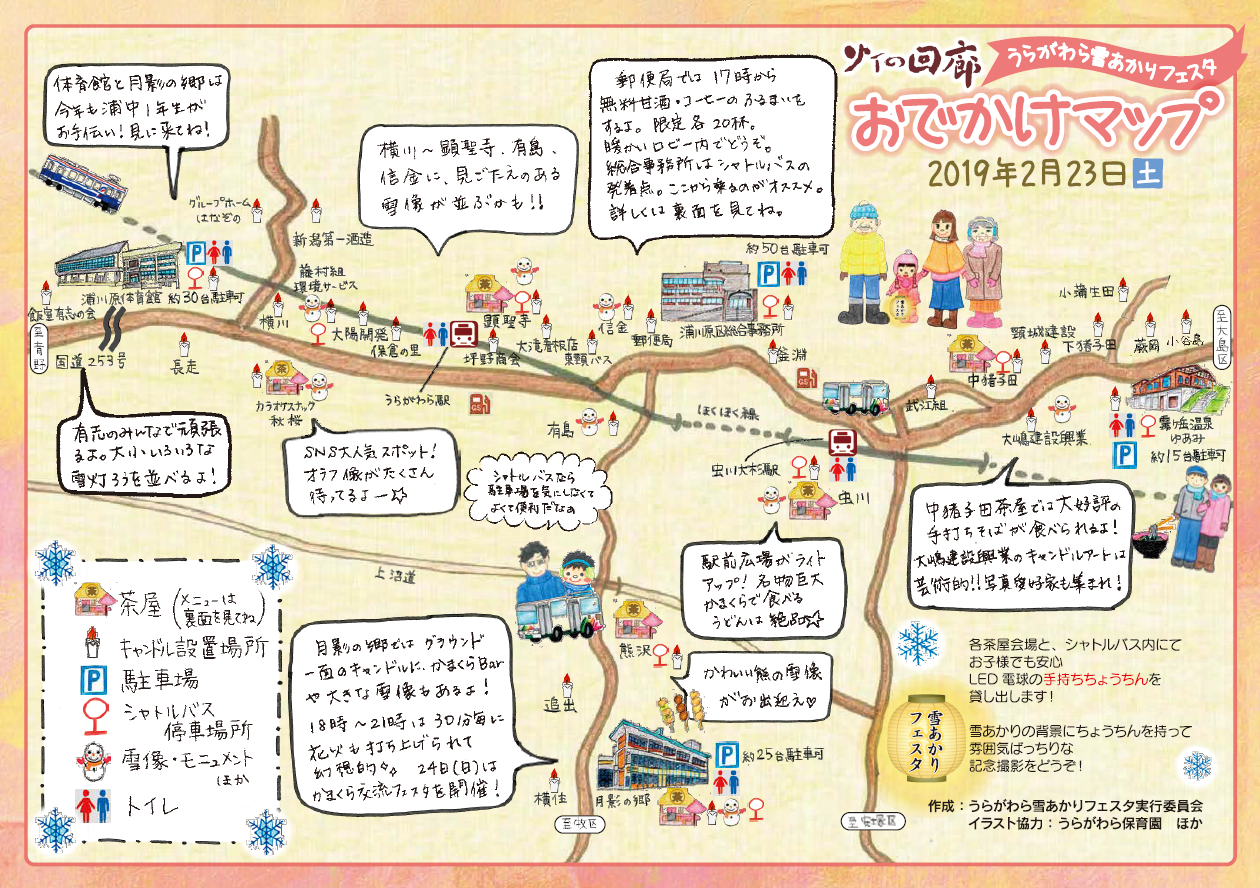 灯の回廊
うらがわら雪あかりフェスタ
おでかけマップ
2019年2月23日土
体育館と月影の郷は
今年も浦中1年生が
お手伝い!見に来てね!
横川〜顕聖寺、有島、
信金に、見ごたえのある
雪像が並ぶかも!!
郵便局では17時から
無料甘酒・コーヒーのふるまいを
するよ。限定各20杯。
暖かいロビー内でどうぞ。
総合事務所はシャトルバスの
発着点。ここから乗るのがオススメ。
詳しくは裏面を見てね。
グループホーム
はなぞの
新潟第一酒造
P
浦川原体育館 約30台駐車可
飯室有志の会
至青野
国道253号
長走
藤村組
環境サービス
横川
大陽開発
保倉の里
茶
顕聖寺
坪野商会
大滝看板店
東頸バス
うらがわら駅
GS
茶
カラオケスナック
秋桜
信金
郵便局
約50台駐車可
P
浦川原区総合事務所
釜淵
GS
有島
ほくほく線
武江組
虫川大杉駅
茶
虫川
小蒲生田
頸城建設
下猪子田
蕨岡
小谷島
至大島区
茶
中猪子田
大嶋建設興業
霧ヶ岳温泉
ゆあみ
P
約15台駐車可
雪あかりフェスタ
有志のみんなで頑張
るよ。大小いろいろな
雪灯ろうを並べるよ!
SNS大人気スポット!
オラフ像がたくさん
待ってるよー☆
シャトルバスなら
駐車場を気にしなくて
よくて便利だなぁ
駅前広場がライト
アップ!名物巨大
かまくらで食べる
うどんは絶品☆
中猪子田茶屋では大好評の
手打ちそばが食べられるよ!
大嶋建設興業のキャンドルアートは
芸術的!!写真愛好家も集まれ!
上沼道
茶屋(メニューは
裏面を見てね)
キャンドル設置場所
P 駐車場
シャトルバス
停車場所
雪像・モニュメント
ほか
トイレ
月影の郷ではグラウンド
一面のキャンドルに、かまくらBar
や大きな雪像もあるよ!
18時〜21時は30分毎に
花火も打ち上げられて
幻想的々。24日(日)は
かまくら交流フェスタを開催!
茶
熊沢
かわいい熊の雪像
がお出迎え♡
追出
横住
P
約25台駐車可
月影の郷
茶
至牧区
至安塚区
各茶屋会場と、シャトルバス内にて
お子様でも安心
LED電球の手持ちちょうちんを
貸し出します!
雪あかりの背景にちょうちんを持って
雰囲気ばっちりな
記念撮影をどうぞ!
雪あかり
フェスタ
作成:うらがわら雪あかりフェスタ実行委員会
イラスト協力:うらがわら保育園 ほか